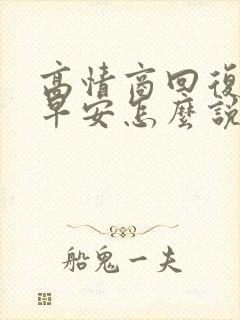 高情商回復
早安怎麼說
船鬼一夫